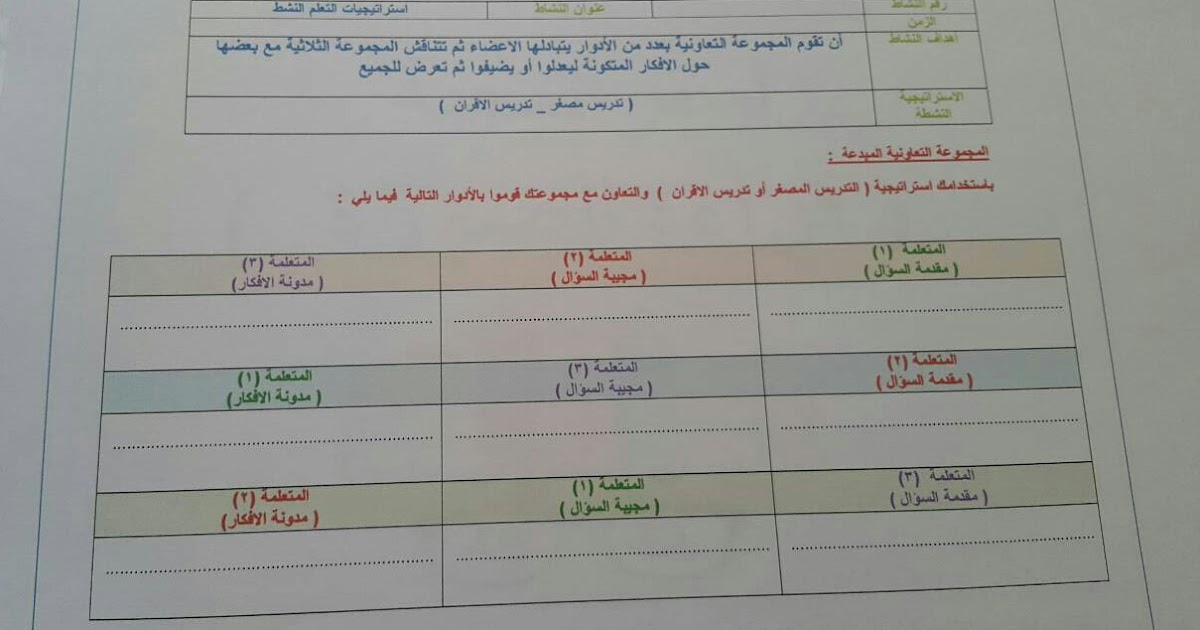 رقم النشاط
عنوان النشاط
استراتيجيات التعلم النشط
الزمن
اهداف النشاط
أن تقوم المجموعة التعاونية بعدد من الأدوار يتبادلها الاعضاء ثم تتناقش المجموعة الثلاثية مع بعضها
حول الافكار المتكونة ليعدلوا أو يضيفوا ثم تعرض للجميع
الاستراتيجية
النشطة
( تدريس مصغر _ تدريس الاقران )
المجموعة التعاونية المبدعة :
باستخدامك استراتيجية ( التدريس المصغر أو تدريس الاقران ) والتعاون مع مجموعتك قوموا بالأدوار التالية فيما يلي :
المتعلمة (١)
( مقدمة السؤال )
المتعلمة (٢)
( مجيبة السؤال )
المتعلمة (٣)
( مدونة الافكار)
المتعلمة (٢)
( مقدمة السؤال )
المتعلمة (٣)
( مجيبة السؤال )
المتعلمة (١)
( مدونة الافكار)
المتعلمة (٣)
( مقدمة السؤال )
المتعلمة (١)
( مجيبة السؤال )
المتعلمة (٢)
( مدونة الافكار)